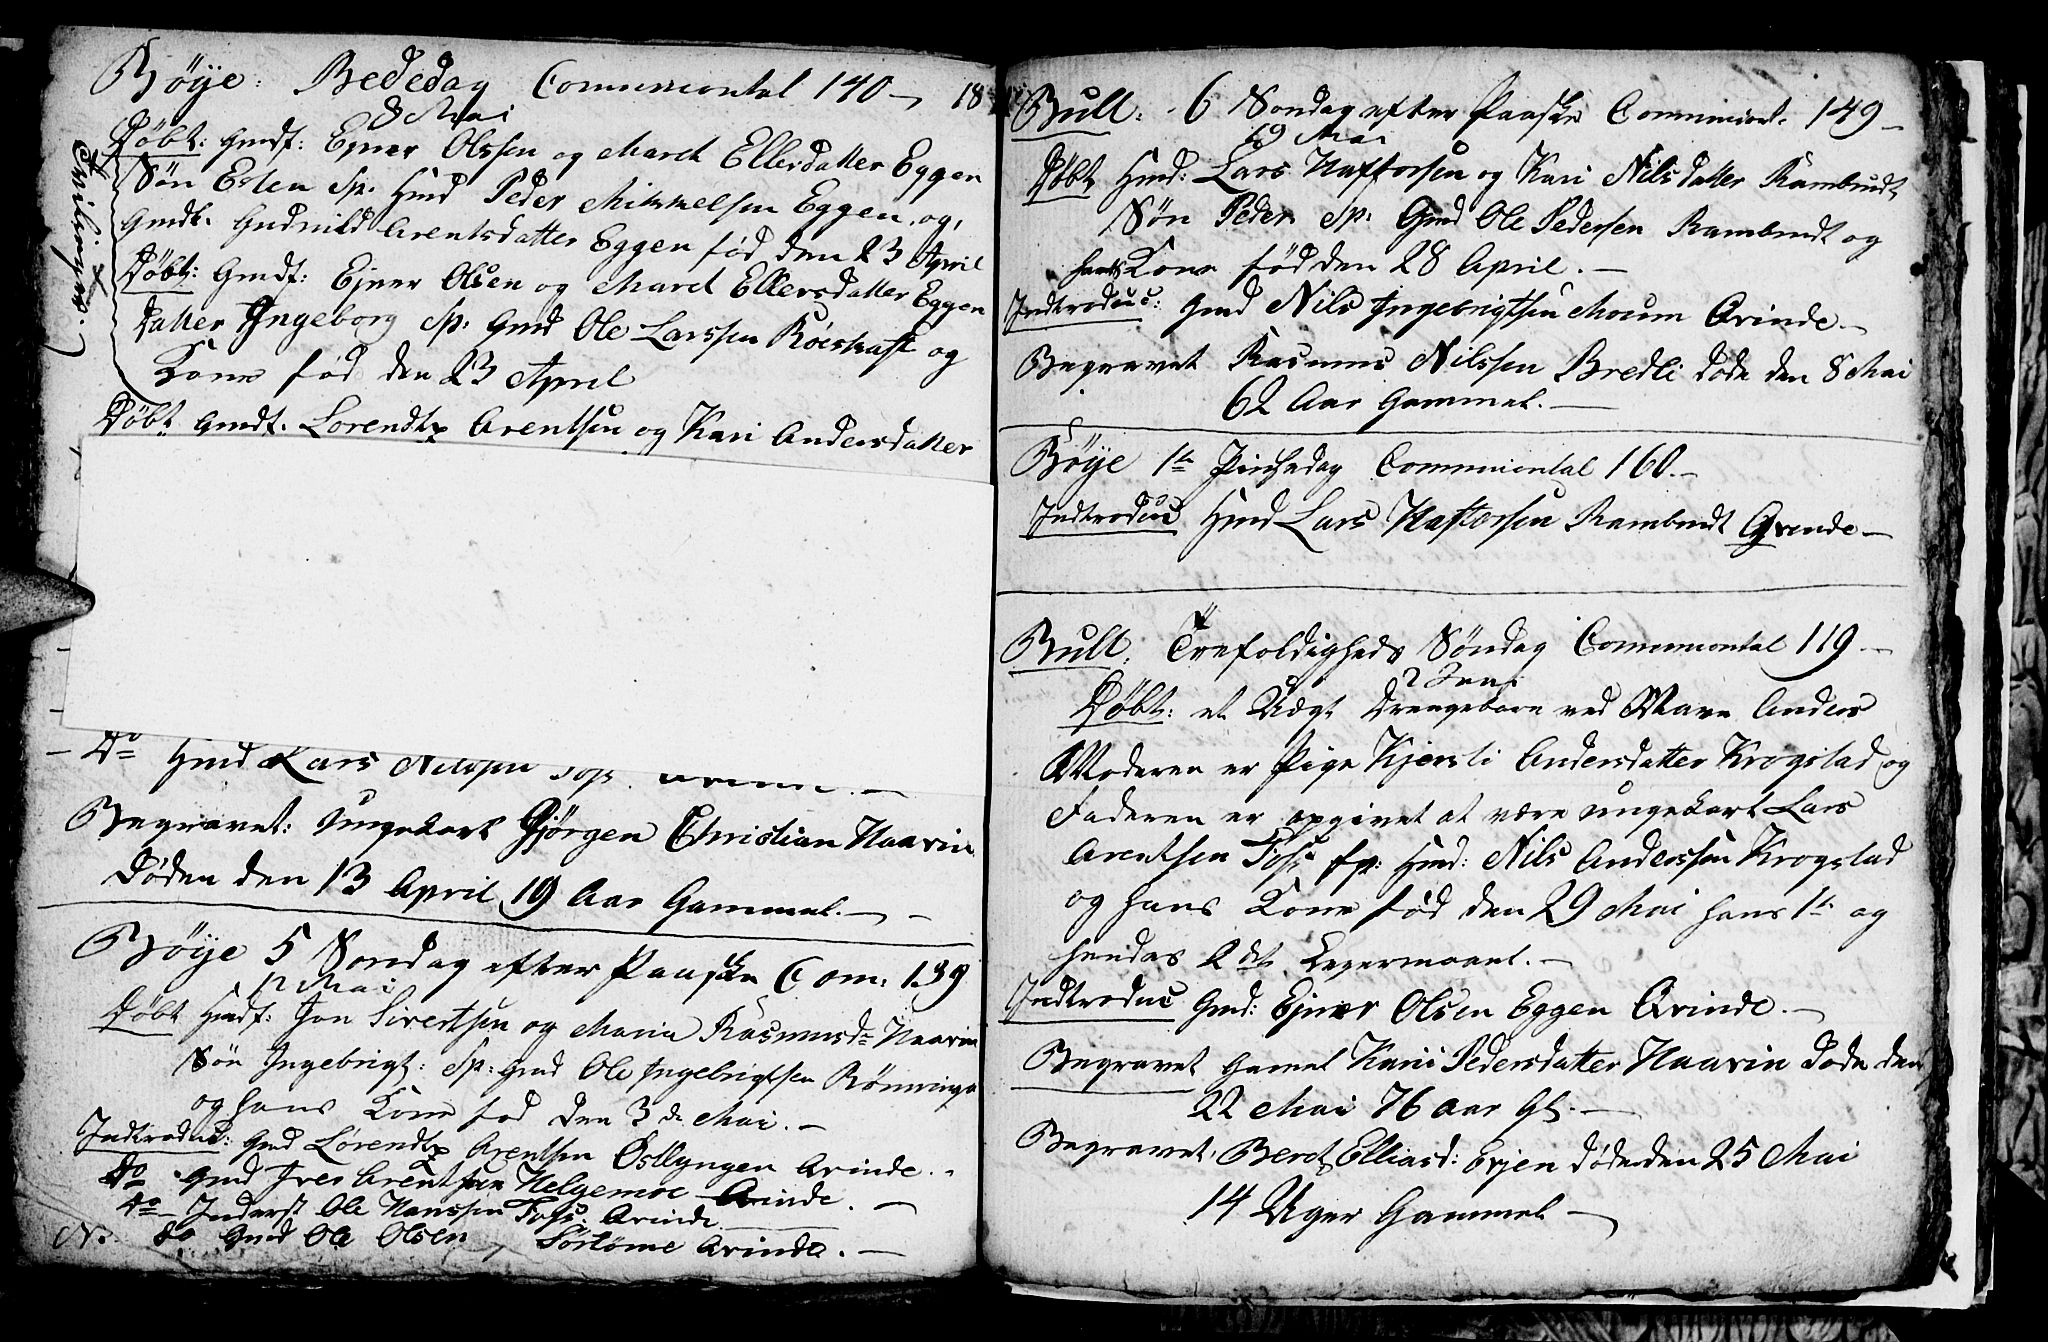 Böye: Bededag Communiontal 140 — 18
8 Mai
Döbt: Gmdf: Ejner Olssen og Maret Ellersdatter Eggen
Tvillinger.
Sön Esten Sp: Hmd Peder Mikkelsen Eggen, og,
Gmdk. Gudnild Arentsdatter Eggen fód den 23 April
Döbt: Gmdf: Ejner Olsen og Maret Ellersdatter Eggen
Datter Ingeborg Sp: Gmd Ole Larssen Röeskaft og
Kone fód den 23 April
Döbt Gmdf. Lorendtz Arentsen og Kari Andersdatter
— Do Hmd Lars Nilsen Foss. Qvinde. —
Begravet: Ungekarl Gjörgen Christian Haavin
Döden den 13 April, 19 Aar Gammel. — —
Böye 5 Sondag efter Paaske Com: 139
12 Mai
Döbt Hmdf: Jon Sivertsen og Maria Rasmusd= Haavin
Sön Ingebrigt: Sp: Gmd Ole Ingebrigtsen Rönninge
og hans Kone fód den 3de Mai. —
Indtroduc: Gmd Lörendtz Arentsen Östlyngen Qvinde. -
Do Gmd Iver Arentsen Helgemoe Qvinde. —
Do — Inderst Ole Hanssen Foss: Qvinde
N. do Gmd Ole Olsen, Sörtömme Qvinde. —
Bull: 6 Söndag efter Paaske Communiont. 149 —
19 Mai
Döbt Hmd: Lars Haftorsen og Kari Nilsdatter Rambudt
Sön Peder Sp: Gmd Ole Pedersen Rambudt og
hans Kone fód den 28 April. —
Indtroduc: Gmd Nils Ingebrigtsen Moum Qvinde. —
Begravet Rasmus Nilssen Bredli Döde den 8 Mai
62 Aar Gammel. —
Böye 1te Pinsedag Communiontal 160. —
Indtroduc Hmd Lars Haftorsen Rambudt Qvinde —
Bull: Trefoldigheds Söndag Communiontal 119. —
2 Juni
Döbt: et Uægt Drengebarn ved Navn Anders
Moderen er Pige Kjersti Andersdatter Krogstad og
Faderen er opgivet at være Ungekarl Lars
Arentsen Foss Sp: Hmd: Nils Anderssen Krogstad
og hans Kone fód den 29 Mai hans 1te og
hendes 2det Legermaal. —
Indtroduc Gmd: Ejner Olsen Eggen Qvinde. —
Begravet Gamel Kari Pedersdatter Haavin Döde den
22 Mai 76 aar Gl. —
Begravet, Beret Elliasd: Evjen döde den 25 Mai
14 Uger Gammel —